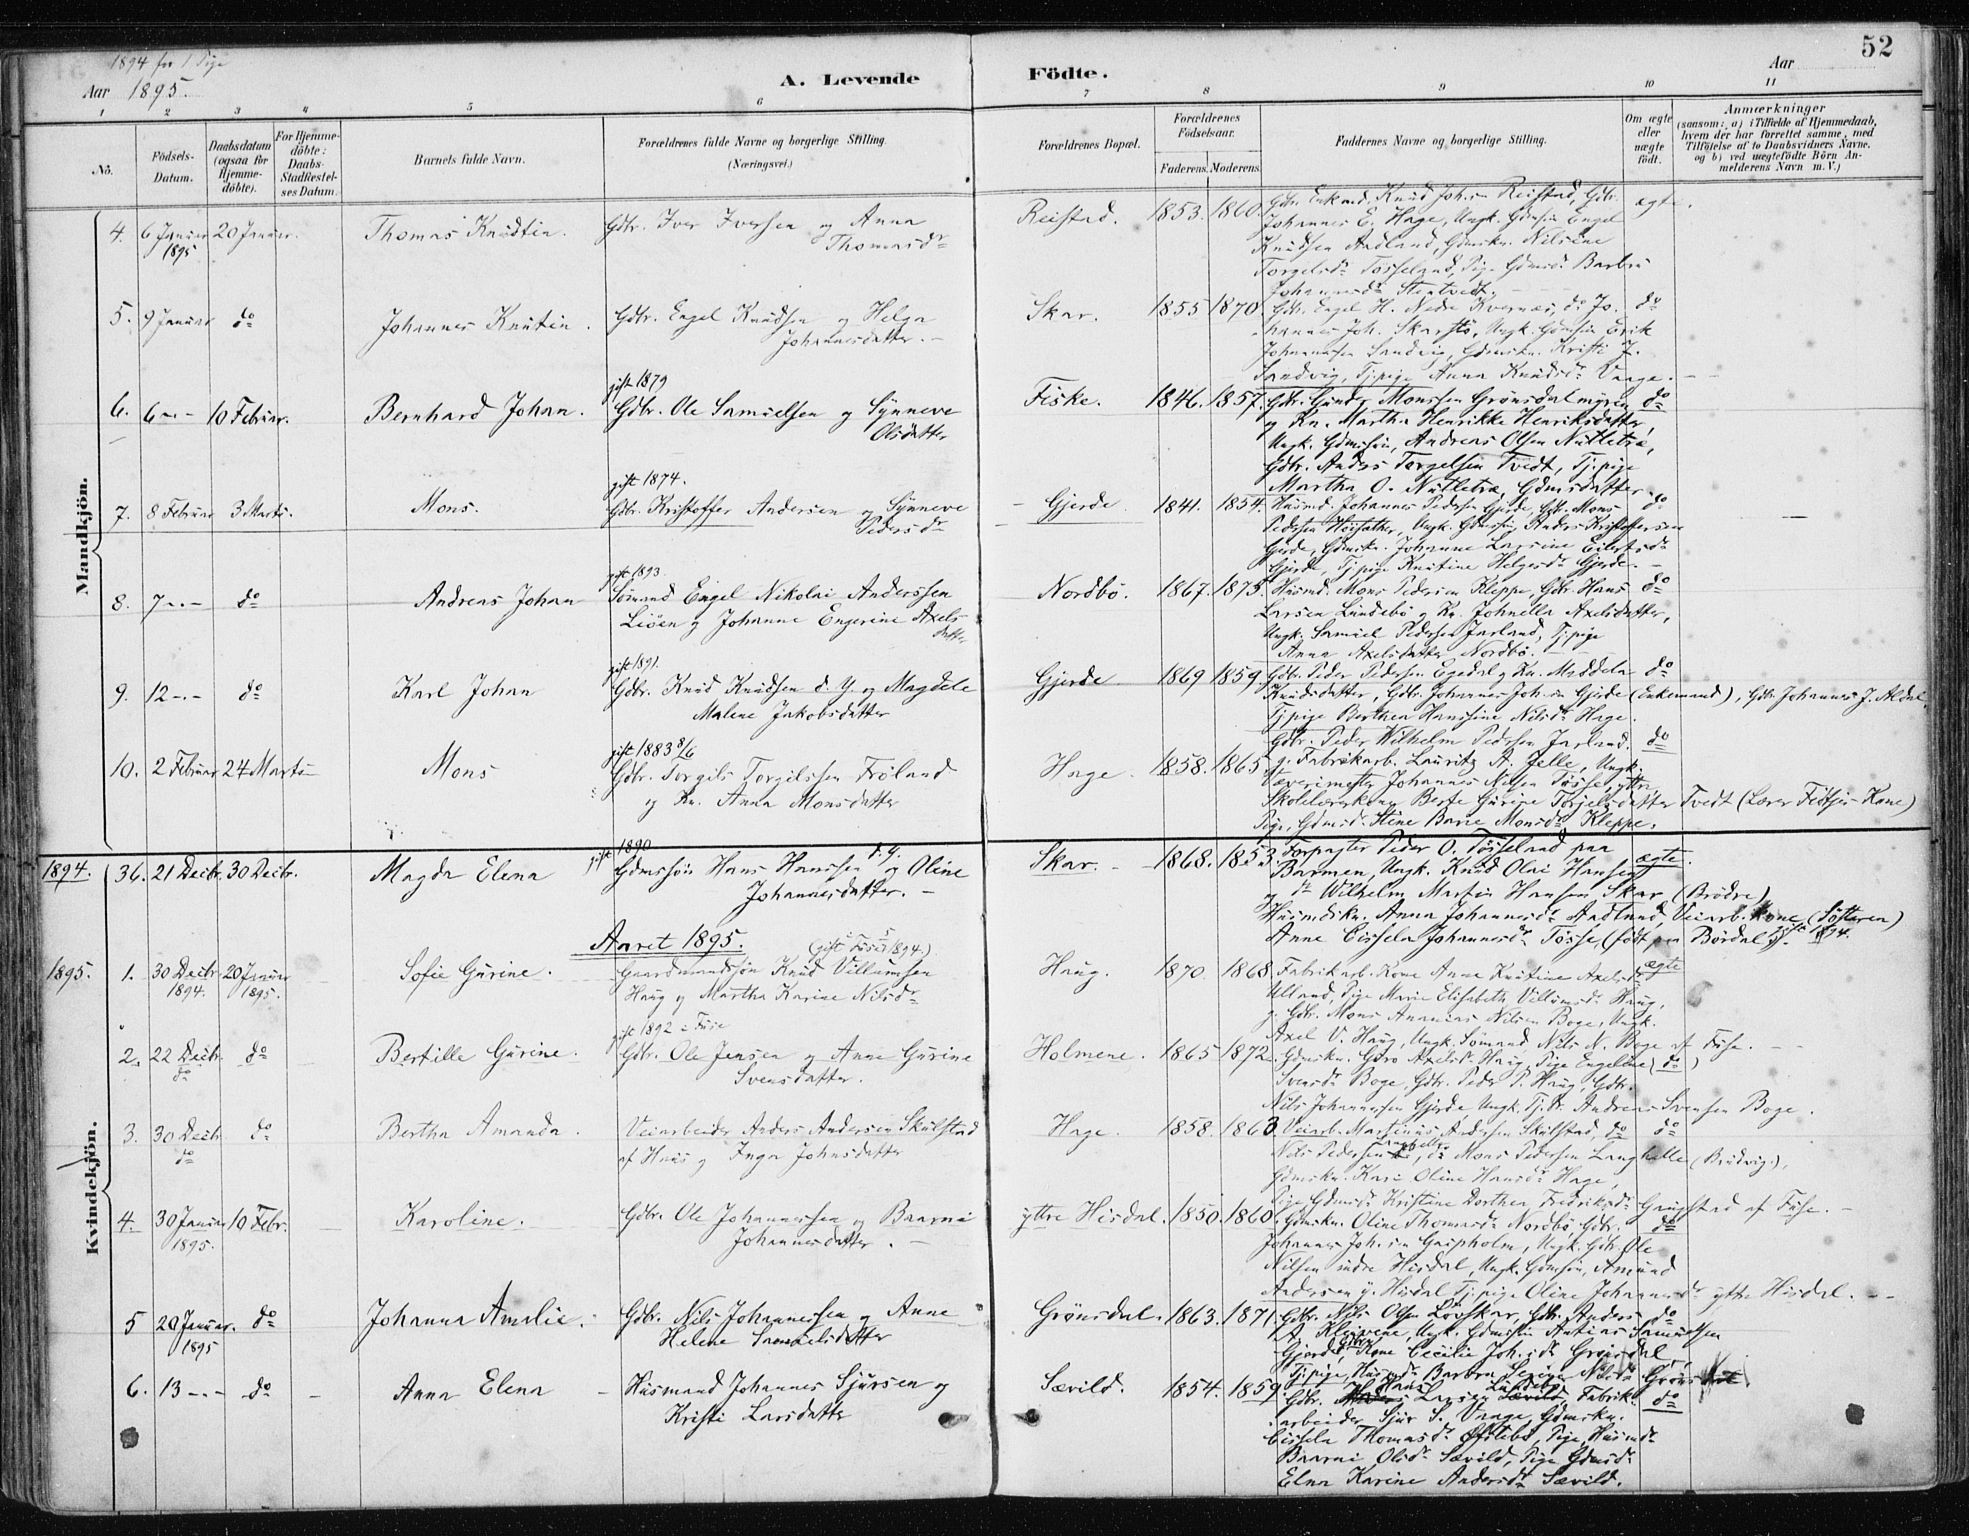 1894 for 1 Pige
Aar 1895.
A. Levende Födte.
Aar
52
1 2 3 4 5 6 7 8 9 10 11
No.
Födsels-Datum.
Daabsdatum (ogsaa for Hjemme-döbte).
For Hjemme-döbte: Daabs-Stadfæstel-ses Datum.
Barnets fulde Navn.
Forældrenes fulde Navne og borgerlige Stilling. (Næringsvei.)
Forældrenes Bopæl.
Forældrenes Födselsaar.
Faderens. Moderens.
Faddernes Navne og borgerlige Stilling.
Om ægte eller uægte födt.
Anmærkninger
(saasom: a) i Tilfælde af Hjemmedaab,
hvem der har forrettet samme, med
Tilföielse af to Daabsvidners Navne.
og b) ved uægtefödte Börn An-
melderens Navn m. V.)
Mandkjön.
4. 6 Januar 1895 20 Januar. Thomas Knudtin Gdbr. Iver Iversen og Anna Thomasdr Reistad. 1853. 1860. ægte.
Gbr. Enkemd. Knud Johsen Reistad, Gdbr.
Johannes E. Hage, Ungk. Gdmsøn Engel
Knudsen Aadland, Gdmskn. Nilsine
Torgelsdr Tøsseland, Pige Gdmsdr Barbra
Johannesdr Stentvedt.
5. 9 Januar do Johannes Knutin. Gdbr. Engel Knudsen og Helga Johannesdatter. Skar. 1855 1870. do
Gdbr. Engel H. Nedre Kvernæs, do Jo-
hannes Joh. Skarstø, Ungk. Gdmsøn Erik
Johannessen Sandvig, Gdmskn. Kristi J.
Sandvig, Tj.pige Anna Knudsdr Vaage.
6. 6 -"- 10 Februar. Bernhard Johan. gift 1879 Gdbr. Ole Samuelsen og Synneve Olsdatter Fiske. 1846. 1857. do
Gdbr. Gunder Monssen Grønsdalmyren
og Kn. Martha Henrikke Henriksdatter,
Ungk. Gdmsøn, Andreas Olsen Nutletræ,
Gdbr. Anders Torgelsen Tvedt, Tj.pige
Martha O. Nutletræ, Gdmsdatter.
7. 8 Februar 3 Marts. Mons. gift 1874. Gdbr. Kristoffer Andersen og Synneve Pedersdr Gjerde. 1841. 1854. do
Husmd. Johannes Pedersen Gjerde, Gdbr. Mons
Pedersen Høisæther, Ungk. Gdmsøn Anders Kristoffersen
Gjerde, Gdmskn. Johanne Larsine Eilertsdr
Gjerde, Tj.pige Knutine Helgesdr Gjerde.
8. 7 -"- do Andreas Johan gift 1893 Sømand Engel Nikolai Anderssen Liøen og Johanne Engerine Axelsdatter Nordbø. 1867. 1875. do
Husmd. Mons Pedersen Kleppe, Gdbr. Hans
Larsen Lundebø og Kn. Johnella Axelsdatter,
Ungk. Samuel Pedersen Jarland, Tj.pige
Anna Axelsdatter Nordbø.
9. 12 -"- do Karl Johan gift 1891. Gdbr. Knud Knudsen d. y. og Magdele Malene Jakobsdatter Gjerde 1869 1859. do
Gdbr. Peder Pedersen Egedal og Kn. Maddela
Knudsdatter, Gdbr. Johannes Joh.sen Gjerde (Enkemand), Gdbr. Johannes J. Aldal,
Tj.pige Berthea Hansine Nilsdr Hage.
10. 2 Februar 24 Marts Mons gift 1883 8/6 Gdbr. Torgils Torgilssen Frøland og Kn. Anna Monsdatter Hage. 1858. 1865 do
Gdbr. Peder Wilhelm Pedersen Jarland.
g. Fabrikarb. Lauritz A. Jelle, Ungk.
Væverimester Johannes Nilsen Tøsse, yttre,
Skolelærerkone Berte Gurine Torjelsdatter Tvedt (Lærer Fidtjes Kone)
Pige, Gdmsdr Stine Barre Monsdr Kleppe.
Kvindekjön.
1894. 36. 21 Decbr. 30 Decbr. Magda Elena gift 1890 Gdmssjøn Hans Hanssen d. y. og Oline Johannesdatter. Skar. 1868. 1853. ægte.
Forpagter Peder O. Tøsseland paa
Barmen, Ungk. Knud Olai Hansen
og do Wilhelm Martin Hansen Skar (Brødre)
Husmdskn. Anna Johannesdr Aadland, Veiarb. Kone (Søsteren)
Anne Cissela Johannesdr Tøsse (født paa Børdal) gift 1894.
Aaret 1895.
1895. 1. 30 Decbr 1894. 20 Januar 1895. Sofie Gurine. (gift i Fuse 1894.) Gaardmandssøn Knud Villumsen Haug og Martha Karine Nilsdr Haug. 1870. 1868. ægte
Fabrikarb. Kone Anne Knutine Axelsdr
Ulland, Pige Marie Elisabeth Villumsdr Haug,
g. Gdbr. Mons Ananias Nilsen Boge, Ungk.
Axel V. Haug, Ungk. Sømand Nils N. Boge af Fuse.
2. 22 Decbr. do do Bertille Gurine. gift 1892 i Fuse Gdbr. Ole Jensen og Anne Gurine Svensdatter. Holmene. 1865 1872. do
Gdmskn. Guro Axelsdr Haug, Pige Engeline
Svensdr Boge, Gdbr. Peder P. Haug, Gdbr.
Nils Johannessen Gjerde Ungk. Tj.dr. Andreas Svensen Boge.
3. 30 Decbr do do Bertha Amanda. Veiarbeider Anders Andersen Skulstad af Haus og Inga Johnsdatter Hage. 1858. 1863. do
Veiarb. Martinus Andersen Skulstad, do
Nils Pedersen Langhelle, do Mons Pedersen Langhelle (Brudvig),
Gdmskn. Kari Oline Hansdr Hage,
Pige Gdmsdr Kristine Dorthea Fredriksdr Gaupstad af Fuse.
4. 30 Januar 1895. 10 Febr. Karoline. Gdbr. Ole Johannessen og Baarni Johannesdatter. yttre Hisdal. 1850. 1860. do
Gdmskn. Oline Thomasdr Nordbø, Gdbr.
Johannes Joh.sen Gripholm, Ungk. Gdbr. Ole
Nilsen indre Hisdal, Ungk. Gdmsøn, Amund
Andersen y. Hisdal Tj.pige Oline Johannesdr yttre Hisdal.
5 20 Januar. 1895 do Johanna Amalie. Gdbr. Nils Johannessen og Anne Helene Samuelsdatter Grønsdal. 1863. 1871. do
Gdbr. Nils Olsen Løvskar, Gdbr. Anders
A. Kleivene, Ungk. Gdmssøn Antias Samuelsen
Gjerde, Gdbr. Kone Cecilie Joh.sdr Grønsdal,
Tj.pige, Husmdr Barbra Serine Nilsdr Grønsdal
6. 13 -"- do Anna Elena Husmand Johannes Sjursen og Kristi Larsdatter Sævild. 1854. 1859. do
Gdbr. Hans Larsen Lundebø, Fabrik-
arbeider Sjur S. Vaage, Gdmskn.
Cissela Thomasdr Øistebø, Pige, Husmdr
Baarni Olsdr Sævild, Pige Gdmsdr
Elna Karine Andersdr Sævild.